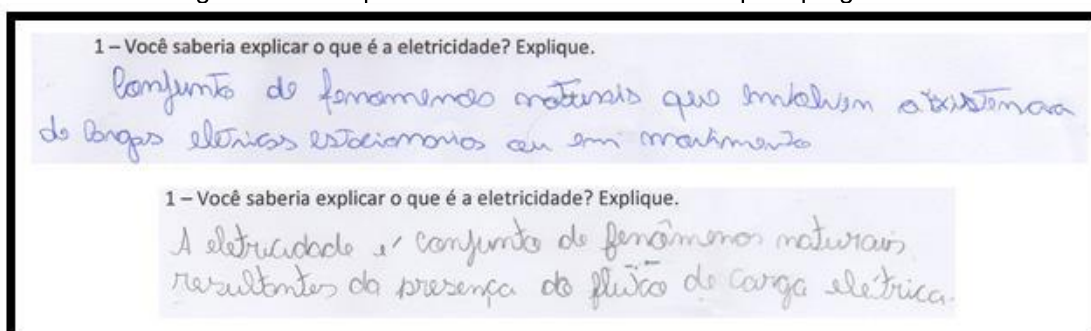 1 – Você saberia explicar o que é a eletricidade? Explique.
Conjunto de fenomenos naturais que envolvem existencia
de cargas eletricas estacionarios ou em movimento
1 – Você saberia explicar o que é a eletricidade? Explique.
A eletricidade é conjunto de fenômenos naturais
resultantes da presença do de carga elétrica.